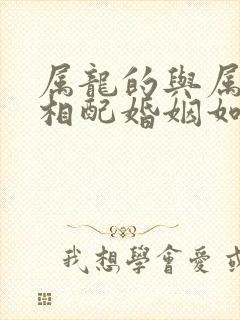 属龍的與属
相配婚姻如
我想學會愛或